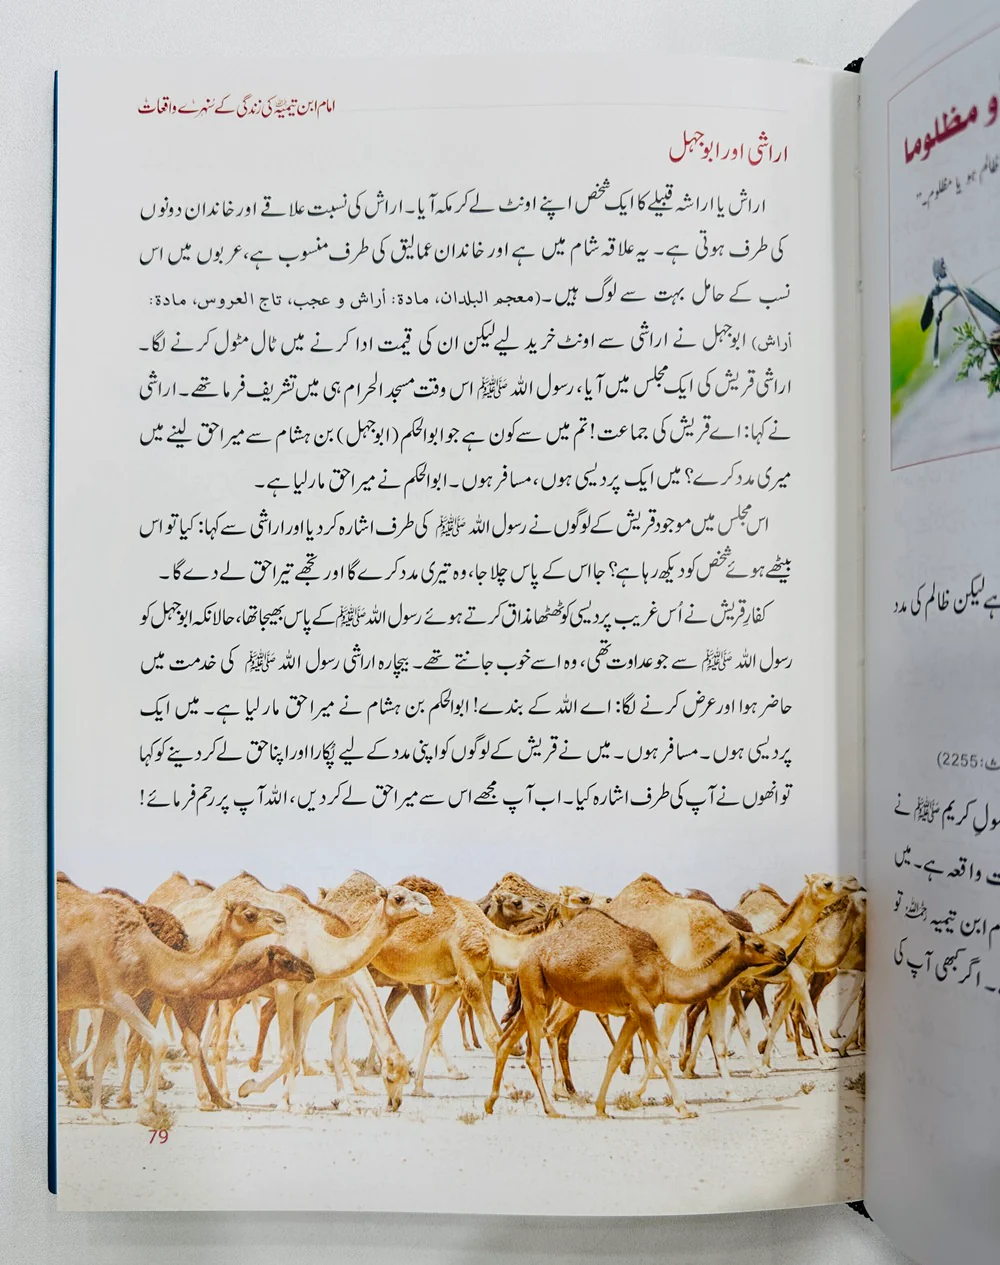 امام ابن تیمیہ رحمہ اللہ کی زندگی کے سنہرے واقعات
اراشی اور ابوجہل
اراش یا اراشہ قبیلے کا ایک شخص اپنے اونٹ لے کر مکہ آیا۔ اراش کی نسبت علاقے اور خاندان دونوں
کی طرف ہوتی ہے۔ یہ علاقہ شام میں ہے اور خاندان عمالیق کی طرف منسوب ہے، عربوں میں اس
نسب کے حامل بہت سے لوگ ہیں۔ (معجم البلدان، مادة: أراش و عجب، تاج العروس، مادة:
أراش) ابوجہل نے اراشی سے اونٹ خرید لیے لیکن ان کی قیمت ادا کرنے میں ٹال مٹول کرنے لگا۔
اراشی قریش کی ایک مجلس میں آیا، رسول اللہ ﷺ اس وقت مسجد الحرام ہی میں تشریف فرما تھے۔ اراشی
نے کہا: اے قریش کی جماعت! تم میں سے کون ہے جو ابوالحکم (ابوجہل) بن ہشام سے میرا حق لینے میں
میری مدد کرے؟ میں ایک پردیسی ہوں، مسافر ہوں۔ ابوالحکم نے میرا حق مار لیا ہے۔
اس مجلس میں موجود قریش کے لوگوں نے رسول اللہ ﷺ کی طرف اشارہ کر دیا اور اراشی سے کہا: کیا تو اس
بیٹھے ہوئے شخص کو دیکھ رہا ہے؟ جا اس کے پاس چلا جا، وہ تیری مدد کرے گا اور تجھے تیرا حق لے دے گا۔
کفارِ قریش نے اُس غریب پردیسی کو ٹھٹھا مذاق کرتے ہوئے رسول اللہ ﷺ کے پاس بھیجا تھا، حالانکہ ابوجہل کو
رسول اللہ ﷺ سے جو عداوت تھی، وہ اسے خوب جانتے تھے۔ بیچارہ اراشی رسول اللہ ﷺ کی خدمت میں
حاضر ہوا اور عرض کرنے لگا: اے اللہ کے بندے! ابوالحکم بن ہشام نے میرا حق مار لیا ہے۔ میں ایک
پردیسی ہوں۔ مسافر ہوں۔ میں نے قریش کے لوگوں کو اپنی مدد کے لیے پُکارا اور اپنا حق لے کر دینے کو کہا
تو انھوں نے آپ کی طرف اشارہ کیا۔ اب آپ مجھے اس سے میرا حق لے کر دیں، اللہ آپ پر رحم فرمائے!
79
و مظلوما
ظالم ہو یا مظلوم۔"
ہے لیکن ظالم کی مدد
2255)
کریم ﷺ نے
واقعہ ہے۔ میں
ابن تیمیہ رحمہ اللہ تو
۔ اگر کبھی آپ کی